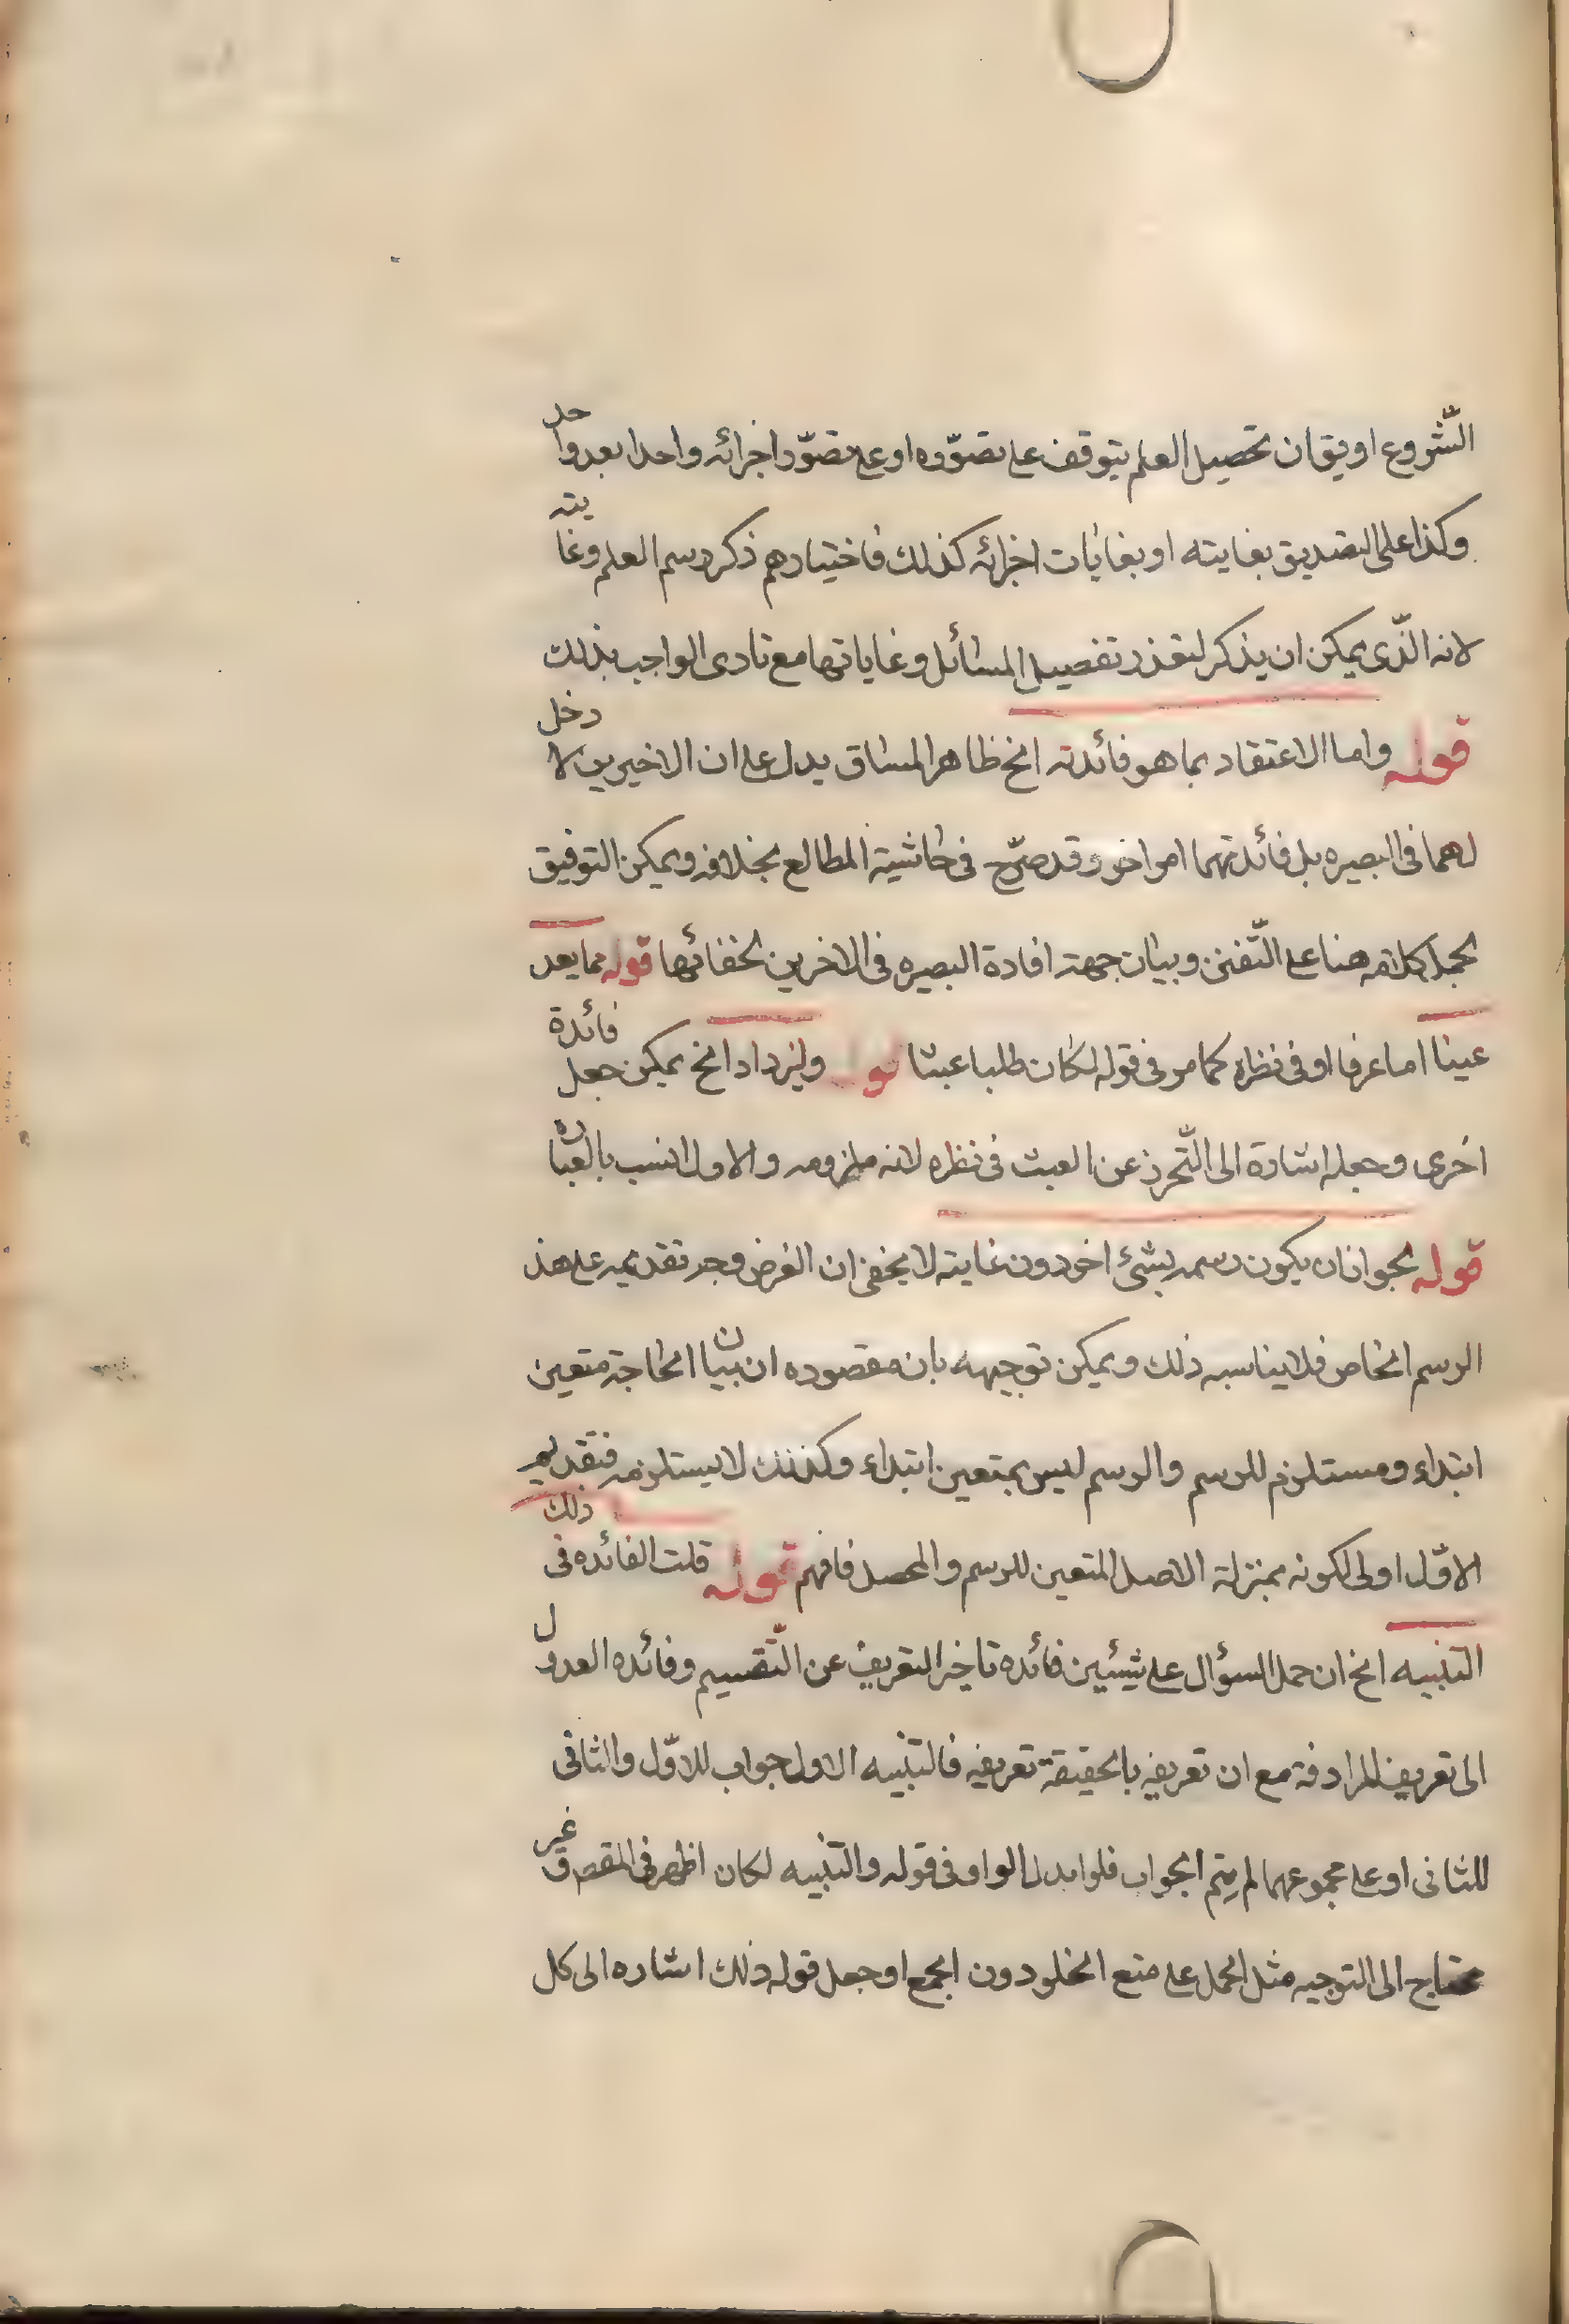 الشّروع او يق ان تحصيل العلم يتوقف على تصوّره او على تصوّر اجزائه واحدا بعد واحد
وكذا على التصديق بغايته او بغايات اجزائه كذلك فاختيارهم ذكر رسم العلم وغايته
لانه الّذى يمكن ان يذكر لتعذر تفصيل المسائل وغاياتها مع تادى الواجب بذلك
قوله واما الاعتقاد بما هو فائدته الخ ظاهر المساق يدل على ان الاخيرين لا دخل
لهما فى البصيره بل فائدتهما امر اخر وقد صرّح فى حاشية المطالع بخلافه ويمكن التوفيق
بحمل كلامه هنا على التّفنن وبيان جهة افادة البصيره فى الاخرين لخفائها قوله مما يعد
عبثا اما عرفا او فى نظره كما مر فى قوله لكان طلبا عبثا قوله وليزداد الخ يمكن جعل فائدة
اخرى وجعله اشارة الى التّحرز عن العبث فى نظره لانه ملزومه والاول انسب بالعباره
قوله لجواز ان يكون رسمه بشئ اخر دون غايته لا يخفى ان الغرض وجه تقديمه على هذ
الرسم الخاص فلا يناسبه ذلك ويمكن توجيهه بان مقصوده ان بيان الحاجة متعين
ابتداء ومستلزم للرسم والرسم ليس بمتعين ابتداء وكذلك لا يستلزمه فتقديم
الاوّل اولى لكونه بمنزلة الاصل المتعين للرسم والمحصل فافهم قوله قلت الفائده فى ذلك
التنبيه الخ ان حمل السؤال على شيئين فائده تاخير التعريف عن التّقسيم وفائده العدول
الى تعريف المرادفة مع ان تعريفه بالحقيقة تعريفه فالتنبيه الاول جواب للاوّل والثانى
للثانى او على مجموعهما لم يتم الجواب فلو ابدل الواو فى قوله والتنبيه لكان اظهر فى المقصو غير
محتاج الى التوجيه مثل الحمل على منع الخلو دون الجمع او جعل قوله ذلك اشاره الى كل